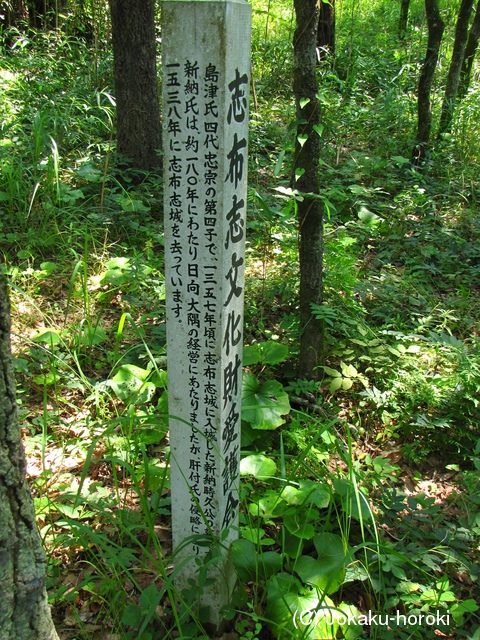 志布志文化財愛護会
島津氏四代忠宗の第四子で、一三五七年頃に志布志城に入城した新納時久公の
新納氏は、約一八〇年にわたり日向・大隅の経営にあたりましたが、肝付氏の侵略により
一五三八年に志布志城を去っています。
(C) Jokaku-horoki